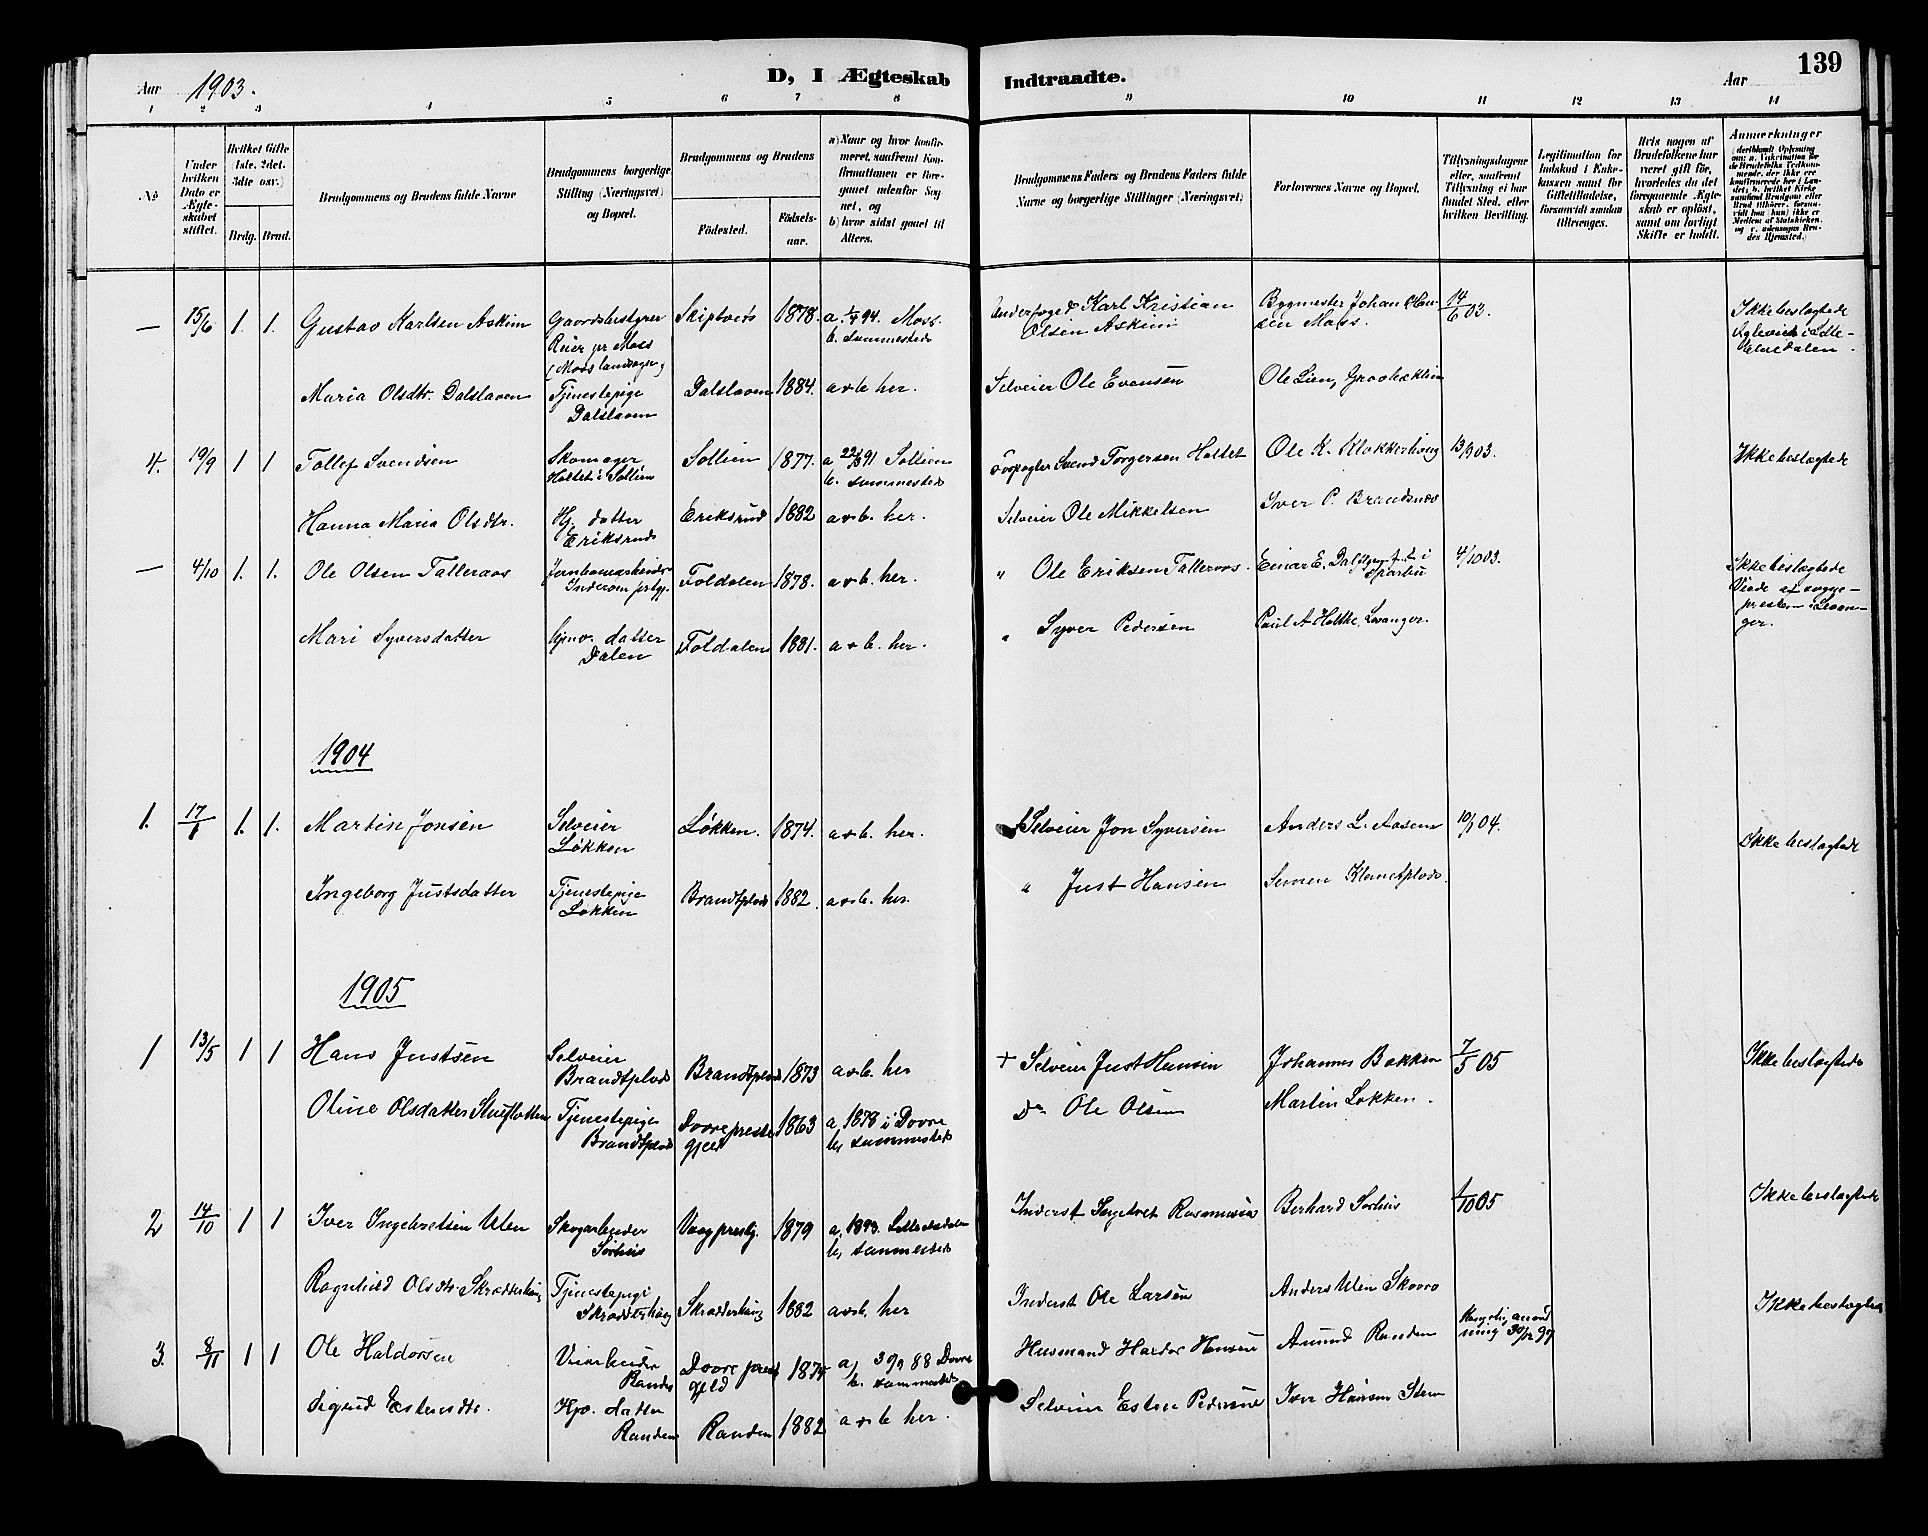 139
D, I Ægteskab Indtraadte.
Aar 1903. Aar
1 2 3 4 5 6 7 8 9 10 11 12 13 14
No.
Under hvilken Dato er Ægteskabet stiftet.
Hvilket Gifte (1ste, 2det, 3dte osv.)
Brdg. Brud.
Brudgommens og Brudens fulde Navne
Brudgommens borgerlige Stilling (Næringsvei) og Bopæl.
Brudgommens og Brudens
Fødested. Fødselsaar.
a) Naar og hvor konfirmeret, saafremt Konfirmationen er foregaaet udenfor Sognet, og
b) hvor sidst gaaet til Alters.
Brudgommens Faders og Brudens Faders fulde Navne og borgerlige Stillinger (Næringsvei)
Forlovernes Navne og Bopæl.
Tillysningsdagene eller, saafremt Tillysning ei har fundet Sted, efter hvilken Bevilling.
Legitimation for Indskud i Enkekassen samt for Giftetilladelse, forsaavidt saadan tiltrænges.
Hvis nogen af Brudefolkene har været gift før, hvorledes da det foregaaende Ægteskab er opløst, samt om lovligt Skifte er holdt.
Anmerkninger
— 15/6 1. 1. Gustav Karlsen Askim Gaardsbestyrer Skiptvedt 1878. a. 94. Moss.
Reier pr Moss b. sammesteds
(Moss landsogn)
Karl Kristian Olsen Askim
Bygmester Johan Hansen Moss.
14/6 03.
Ikke beslægtede
Maria Olsdtr. Dalslaaen Tjenestepige Dalslaaen Dalslaaen 1884. a & b her.
Selveier Ole Evensen
Ole Lien,
4. 19/9 1 1 Tollef Svendsen Skomager Sollien 1877. a. 91 Sollien
b. sammesteds
Svend Torgersen Haltet
Ole K. Klokkerhoug
13/9 03.
Ikke beslægtede
Hanna Maria Olsdtr. Hj. datter Eriksrud Eriksrud 1882 a & b. her.
Selveier Ole Mikkelsen
Iver P. Brandsnæs
— 4/10 1. 1. Ole Olsen Talleraas Foldalen 1878. a & b. her.
" Ole Eriksen Talleraas.
Einar E. Sparbu
4/10 03.
Ikke beslægtede
Viede af sogne-
presten i Levan-
ger.
Mari Syversdatter Hjmv. datter Dalen Foldalen 1881. a & b. her.
" Syver Pedersen
Paul A Holtke, Levanger.
1904
1. 17/1 1. 1. Martin Jonsen Selveier Løkken Løkken. 1874. a & b. her.
Selveier Jon Syversen
Anders L. Aasen
10/1 04.
Ikke beslægtede
Ingeborg Justsdatter Tjenestepige Løkken Brandtplads 1882 a & b. her.
" Just Hansen
Simen Klemetplads.
1905
1 13/5 1 1 Hans Justsen Selveier Brandtplads Brandtplads 1873 a & b. her
+ Selveier Just Hansen
Johannes Bakken
7/5 05
Ikke beslægtede
Oline Olsdatter Tjenestepige Brandtplads Dovre prestegjeld 1863 a, 1878 i Dovre
b, sammesteds
Do Ole Olsen
Martin Løkken.
2 14/10 1 1 Iver Ingebretsen Ulen Skogarbeider Sørhus Vaage prestgj. 1879 a, 1893.
b, sammesteds
Inderst Ingebret Rasmussen
Berhard Sørhus
1/10 05
Ikke beslægtede
Ragnhild Olsdtr. Skrædderhaug Tjenestepige Skrædderhaug Skrædderhaug 1882 a & b. her
Inderst Ole Larsen
Anders Ulen Skovro
3. 8/11 1 1 Ole Haldorsen Randen Dovre prestgjeld a, 88 Dovre
b. sammesteds
Husmand Haldor Hansen
Amund Randen
Kongelig anordning
Ikke beslægtede
Sigrid Estensdtr. Hjv. datter Randen Randen 1882 a & b her.
Selveier Esten Pedersen
Iver Hansen